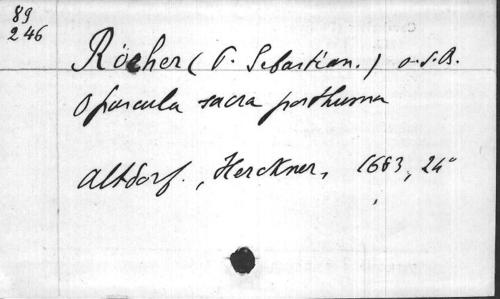 89
246
Röcher (P. Sebastian.) o.S.B.
Opuscula sacra posthuma
Altdorf., Herckner, 1663, 24°